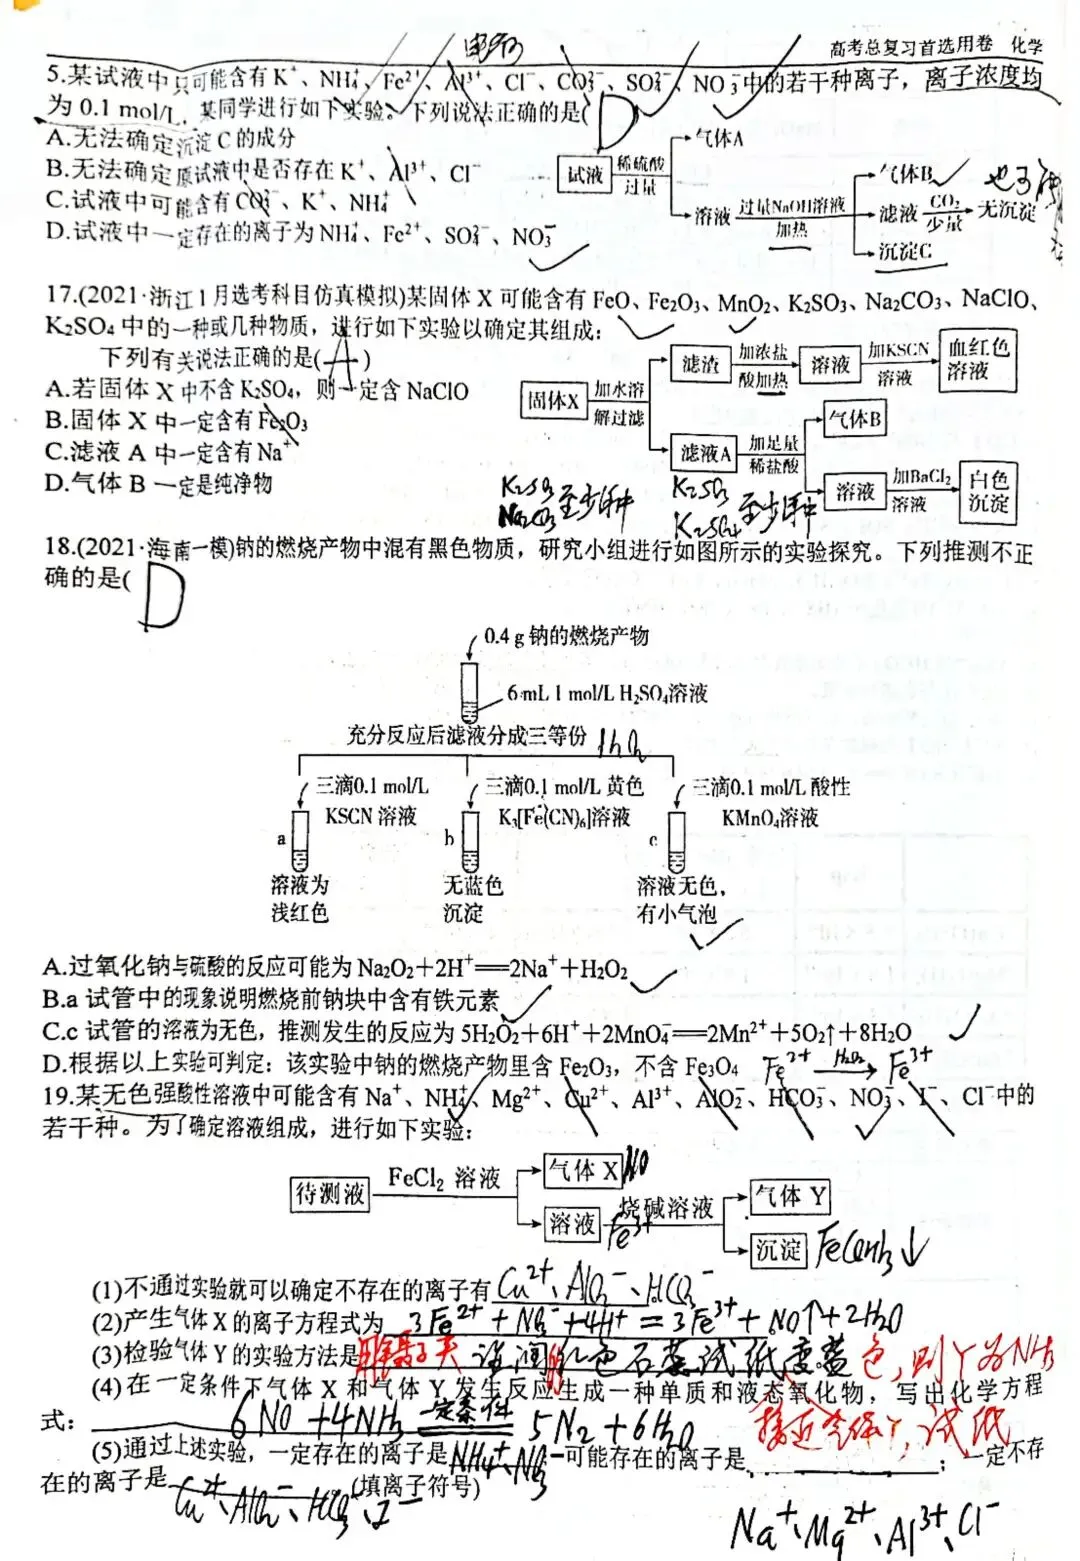 高考总复习首选用卷 化学
5.某试液中只可能含有K⁺、NH₄⁺、Fe²⁺、Al³⁺、Cl⁻、CO₃²⁻、SO₄²⁻、NO₃⁻中的若干种离子，离子浓度均
为 0.1 mol/L，某同学进行如下实验。下列说法正确的是( D
A.无法确定沉淀 C 的成分
B.无法确定原试液中是否存在 K⁺、Al³⁺、Cl⁻
C.试液中可能含有CO₃²⁻、K⁺、NH₄⁺
D.试液中一定存在的离子为 NH₄⁺、Fe²⁺、SO₄²⁻、NO₃⁻
试液 稀硫酸 过量 气体A
溶液 过量NaOH溶液 加热 气体B
滤液 CO₂ 少量 无沉淀
沉淀C
17.(2021·浙江1月选考科目仿真模拟)某固体 X 可能含有 FeO、Fe₂O₃、MnO₂、K₂SO₃、Na₂CO₃、NaClO、
K₂SO₄ 中的一种或几种物质，进行如下实验以确定其组成：
下列有关说法正确的是( A )
A.若固体 X 中不含 K₂SO₄，则一定含 NaClO
B.固体 X 中一定含有 Fe₂O₃
C.滤液 A 中一定含有 Na⁺
D.气体 B 一定是纯净物
固体X 加水溶 解过滤
滤渣 加浓盐 酸加热 溶液 加KSCN 溶液 血红色 溶液
滤液A 加足量 稀盐酸 气体B
溶液 加BaCl₂ 溶液 白色 沉淀
K₂SO₃ Na₂CO₃ 至少1种
K₂SO₃ K₂SO₄ 至少1种
18.(2021·海南一模)钠的燃烧产物中混有黑色物质，研究小组进行如图所示的实验探究。下列推测不正
确的是( D
0.4 g 钠的燃烧产物
6 mL 1 mol/L H₂SO₄溶液
充分反应后滤液分成三等份 H₂O₂
三滴0.1 mol/L KSCN 溶液
三滴0.1 mol/L 黄色 K₃[Fe(CN)₆]溶液
三滴0.1 mol/L 酸性 KMnO₄溶液
a b c
溶液为 浅红色
无蓝色 沉淀
溶液无色， 有小气泡
A.过氧化钠与硫酸的反应可能为 Na₂O₂+2H⁺══2Na⁺+H₂O₂
B.a 试管中的现象说明燃烧前钠块中含有铁元素
C.c 试管的溶液为无色，推测发生的反应为 5H₂O₂+6H⁺+2MnO₄⁻══2Mn²⁺+5O₂↑+8H₂O
D.根据以上实验可判定：该实验中钠的燃烧产物里含 Fe₂O₃，不含 Fe₃O₄ Fe²⁺ H₂O₂→ Fe³⁺
19.某无色强酸性溶液中可能含有 Na⁺、NH₄⁺、Mg²⁺、Cu²⁺、Al³⁺、AlO₂⁻、HCO₃⁻、NO₃⁻、I⁻、Cl⁻中的
若干种。为了确定溶液组成，进行如下实验：
待测液 FeCl₂ 溶液 气体 X NO
溶液 Fe³⁺ 烧碱溶液 气体 Y
沉淀 Fe(OH)₃↓
(1)不通过实验就可以确定不存在的离子有 Cu²⁺、AlO₂⁻、HCO₃⁻
(2)产生气体 X 的离子方程式为 3Fe²⁺ + NO₃⁻ + 4H⁺ = 3Fe³⁺ + NO↑ + 2H₂O
(3)检验气体 Y 的实验方法是 湿润的红色石蕊试纸变蓝色，则Y为NH₃
接近气体Y，试纸
(4)在一定条件下气体 X 和气体 Y 发生反应生成一种单质和液态氧化物，写出化学方程
式： 6NO + 4NH₃ 一定条件 5N₂ + 6H₂O
(5)通过上述实验，一定存在的离子是 NH₄⁺、NO₃⁻ 可能存在的离子是 ；一定不存
在的离子是 (填离子符号)
Cu²⁺、AlO₂⁻、HCO₃⁻、I⁻
Na⁺、Mg²⁺、Al³⁺、Cl⁻